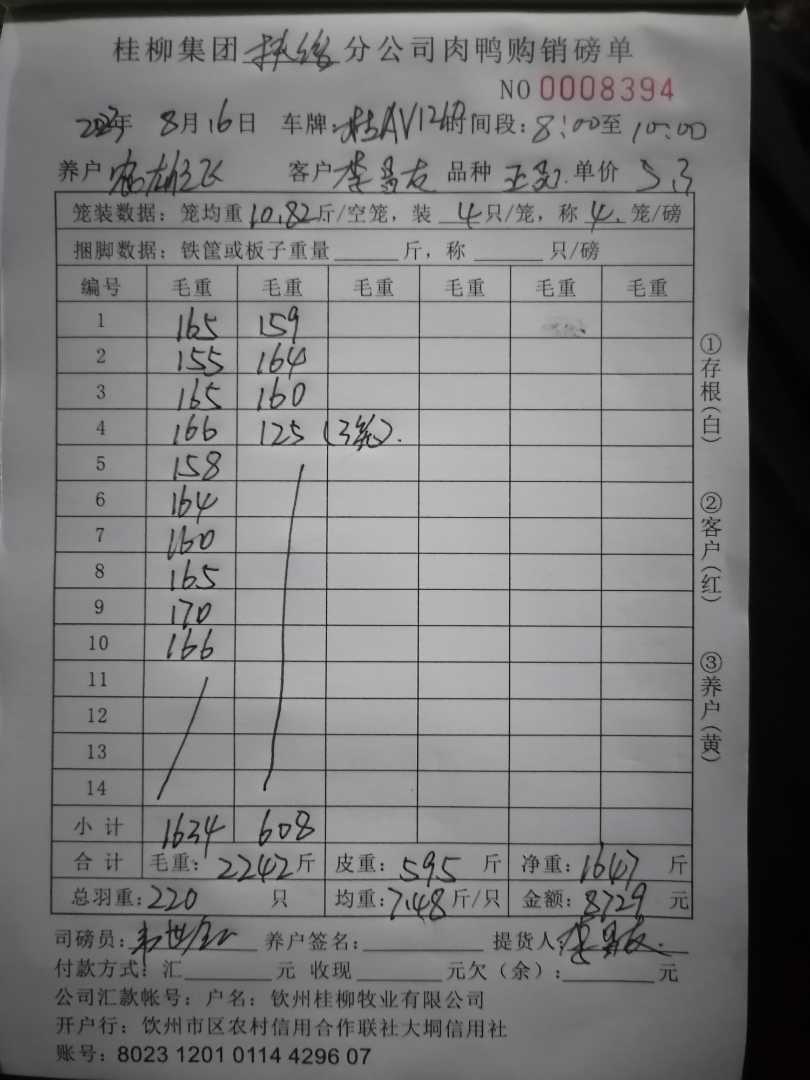 桂柳集团 分公司肉鸭购销磅单
NO 0008394
2023年 8月16日 车牌: 桂AV12 时间段: 8:00至 10:00
养户 客户 李 友 品种 单价 5.3
笼装数据: 笼均重 10.82斤/空笼, 装 4只/笼, 称 4. 笼/磅
捆脚数据: 铁筐或板子重量______斤, 称______只/磅
编号 毛重 毛重 毛重 毛重 毛重 毛重
1 165 159
2 155 164
3 165 160
4 166 125 (3笼).
5 158
6 164
7 160
8 165
9 170
10 166
11
12
13
14
小 计 1634 608
合 计 毛重: 2242斤 皮重: 595 斤 净重: 1647 斤
总羽重: 220 只 均重: 7.48斤/只 金额: 8729 元
司磅员: 韦世 养户签名:________ 提货人: 李 友.
付款方式: 汇______元 收现______元欠(余):______元
公司汇款帐号: 户名: 钦州桂柳牧业有限公司
开户行: 钦州市区农村信用合作联社大垌信用社
账号: 8023 1201 0114 4296 07
①存根(白)
②客户(红)
③养户(黄)